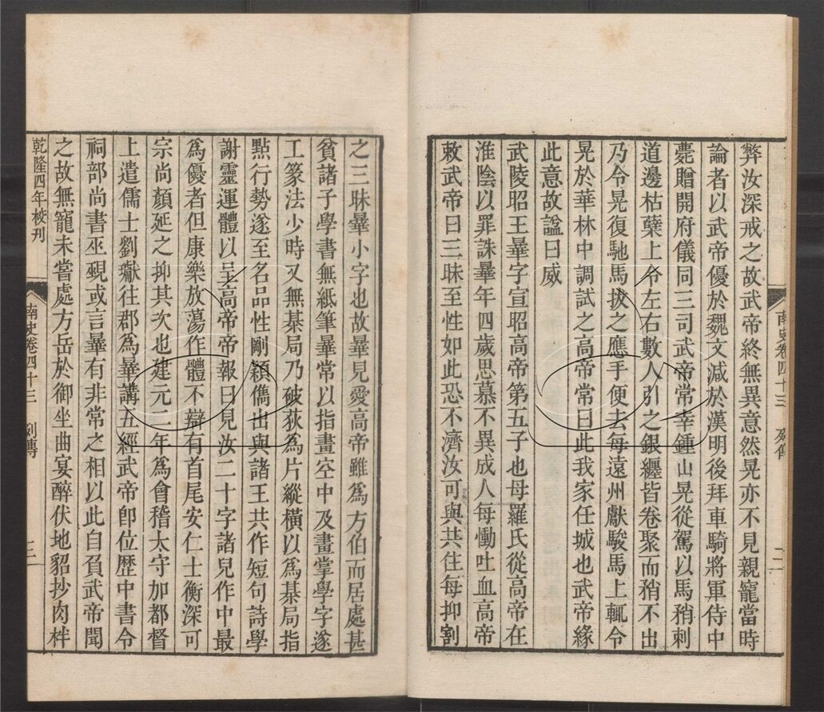 弊汝深戒之故武帝終無異意然晃亦不見親寵當時
論者以武帝優於魏文減於漢明後拜車騎將軍侍中
薨贈開府儀同三司武帝常幸鍾山晃從駕以馬矟刺
道邊枯蘖上令左右數人引之銀纏皆卷聚而矟不出
乃令晃復馳馬拔之應手便去每遠州獻駿馬上輒令
晃於華林中調試之高帝常曰此我家任城也武帝緣
此意故諡曰威
武陵昭王曅字宣昭高帝第五子也母羅氏從高帝在
淮陰以罪誅曅年四歲思慕不異成人每慟吐血高帝
敕武帝曰三昧至性如此恐不濟汝可與共住每抑割
南史卷四十三 列傳 二
之三昧曅小字也故曅見愛高帝雖爲方伯而居處甚
貧諸子學書無紙筆曅常以指畫空中及畫掌學字遂
工篆法少時又無棊局乃破荻爲片縱橫以爲棊局指
點行勢遂至名品性剛穎儁出與諸王共作短句詩學
謝靈運體以呈高帝帝報曰見汝二十字諸兒作中最
爲優者但康樂放蕩作體不辯有首尾安仁士衡深可
宗尚顏延之抑其次也建元二年爲會稽太守加都督
上遣儒士劉瓛往郡爲曅講五經武帝卽位歷中書令
祠部尚書巫覡或言曅有非常之相以此自負武帝聞
之故無寵未嘗處方岳於御坐曲宴醉伏地貂抄肉柈
乾隆四年校刊
南史卷四十三 列傳 三